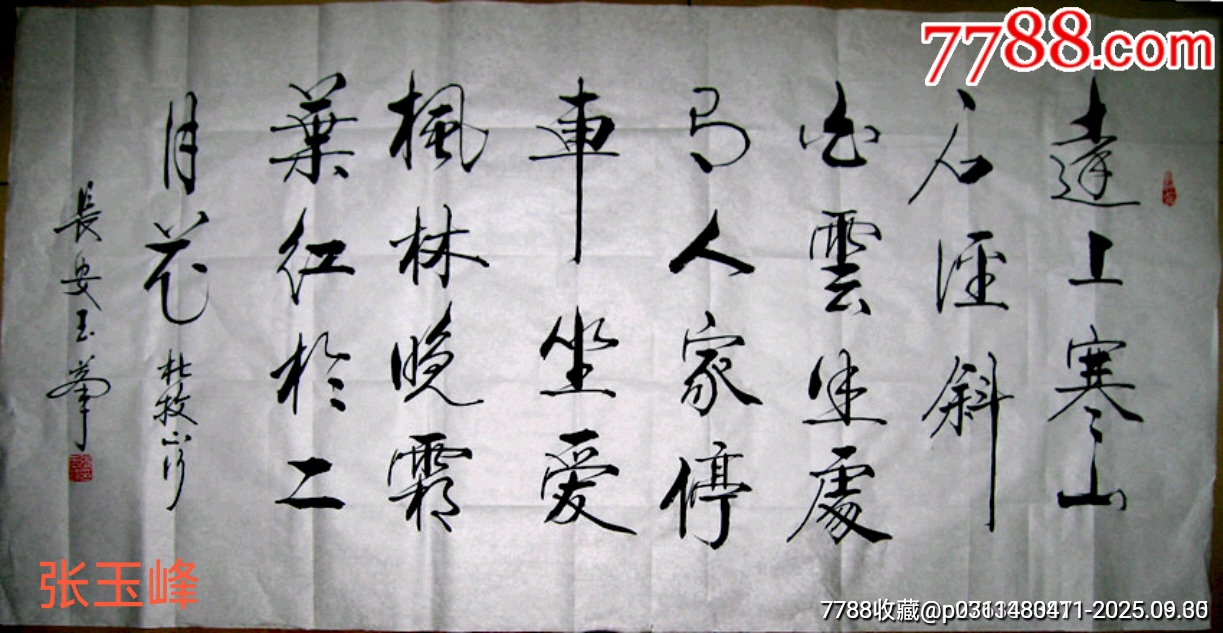 7788.com
遠上寒山
石徑斜
白雲生處
有人家停
車坐爱
楓林晚霜
葉紅於二
月花
杜牧山行
長安玉峯
张玉峰
7788收藏